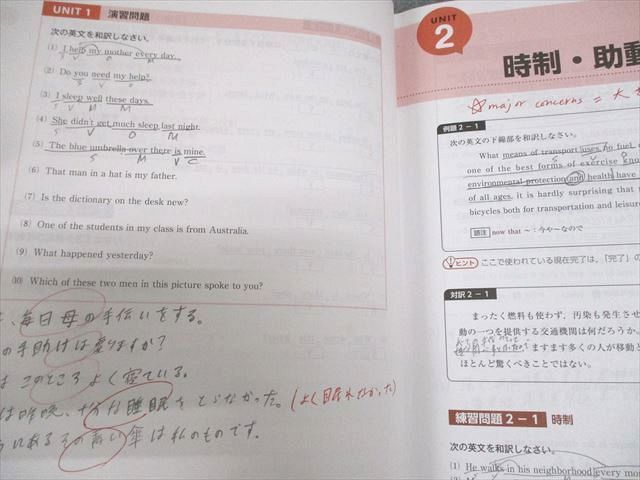 UNIT 1 演習問題
次の英文を和訳しなさい。
(1) I help my mother every day.
S V O M
(2) Do you need my help?
S V O
(3) I sleep well these days.
S V M M
(4) She didn't get much sleep last night.
S V O M
(5) The blue umbrella over there is mine.
S M V C
(6) That man in a hat is my father.
(7) Is the dictionary on the desk new?
(8) One of the students in my class is from Australia.
(9) What happened yesterday?
(10) Which of these two men in this picture spoke to you?
、毎日母の手伝いをする。
の手助けは要りますか?
はこのところよく寝ている。
は昨晩、十分な睡眠をとらなかった。(よく眠れなかった)
にあるその青い傘は私のものです。
UNIT
2
時制・助動
☆major concerns = 大
例題 2-1
次の英文の下線部を和訳しなさい。
What means of transport uses no fuel,
S V O
one of the best forms of exercise
environmental protection and health have
of all ages, it is hardly surprising that
bicycles both for transportation and leisure
語注 now that ~:今や~なので
ヒント ここで使われている現在完了は,「完了」の
対訳 2-1
まったく燃料も使わず,汚染も発生させ
動の一つを提供する交通機関は何だろうか。
ますます多くの人が移動と
ほとんど驚くべきことではない。
練習問題 2-1 時制
次の英文を和訳しなさい。
(1) He walks in his neighborhood every mo
S V M